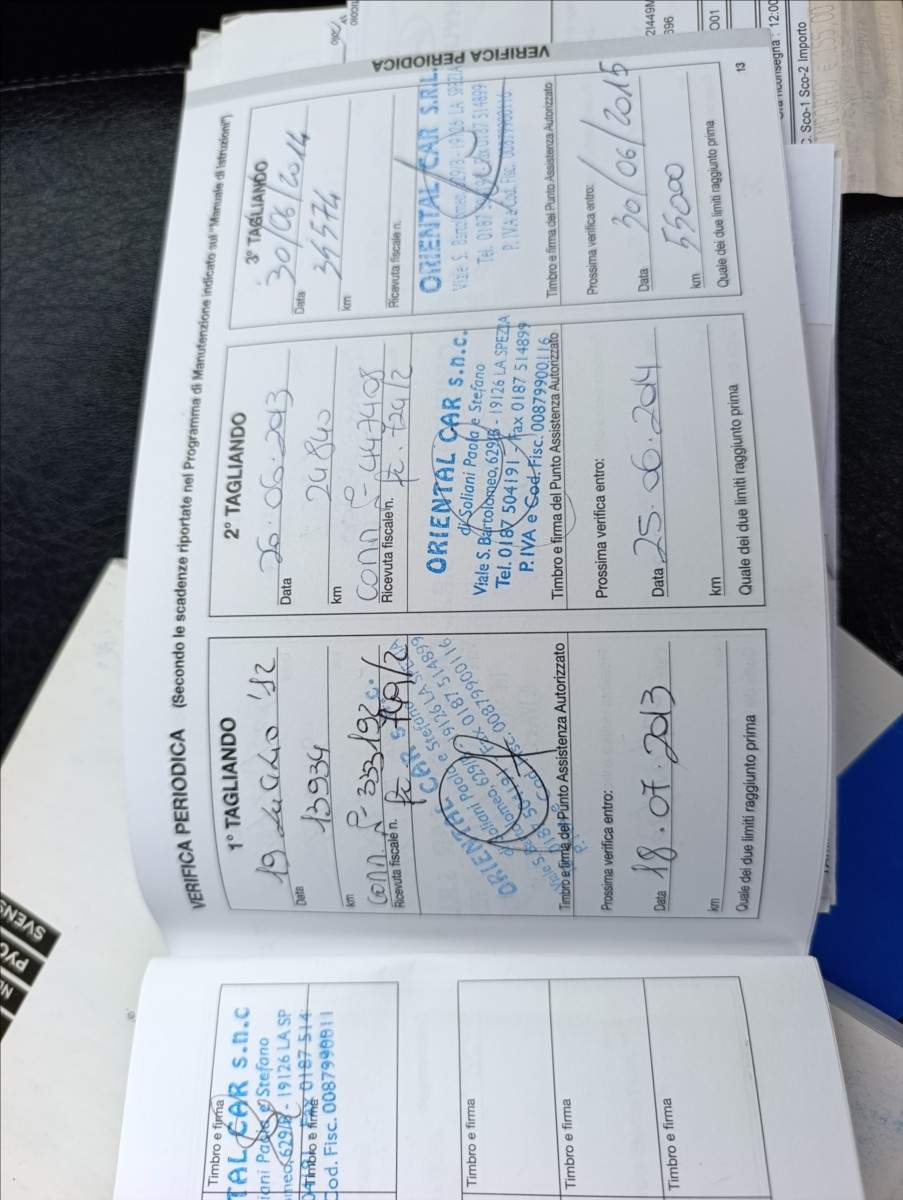 VERIFICA PERIODICA (Secondo le scadenze riportate nel Programma di Manutenzione indicato sul "Manuale di Istruzioni")
1° TAGLIANDO
19 Luglio '12
Data
13934
km
Conn. n° 333192
Ricevuta fiscale n. Fc. 749/2
ORIENTAL CAR s.n.c.
di Soliani Paola e Stefano
Viale S. Bartolomeo, 629/B - 19126 LA SPEZIA
Tel. 0187 504191 - Fax 0187 514899
P. IVA e Cod. Fisc. 00879900116
Timbro e firma del Punto Assistenza Autorizzato
Prossima verifica entro:
Data 18.07.2013
km
Quale dei due limiti raggiunto prima
2° TAGLIANDO
26.06.2013
Data
24840
km
Conn n° 447408
Ricevuta fiscale n. Fc. 724/2
ORIENTAL CAR s.n.c.
di Soliani Paola e Stefano
Viale S. Bartolomeo, 629/B - 19126 LA SPEZIA
Tel. 0187 504191 - Fax 0187 514899
P. IVA e Cod. Fisc. 00879900116
Timbro e firma del Punto Assistenza Autorizzato
Prossima verifica entro:
Data 25.06.2014
km
Quale dei due limiti raggiunto prima
3° TAGLIANDO
30/06/2014
Data
39574
km
Ricevuta fiscale n.
ORIENTAL CAR S.R.L.
Viale S. Bartolomeo, 19126 LA SPEZIA
Tel. 0187 Fax 0187 514899
P. IVA e Cod. Fisc. 00879900116
Timbro e firma del Punto Assistenza Autorizzato
Prossima verifica entro:
30/06/2015
Data
55000
km
Quale dei due limiti raggiunto prima
VERIFICA PERIODICA
13
Timbro e firma
TAL CAR s.n.c
iani Paola e Stefano
meo, 629/B - 19126 LA SP
04191 - Fax 0187 514
Timbro e firma
Cod. Fisc. 0087990011
Timbro e firma
Timbro e firma
Timbro e firma
21449N
396
001
12:00
Sco-1 Sco-2 Importo
SVENS